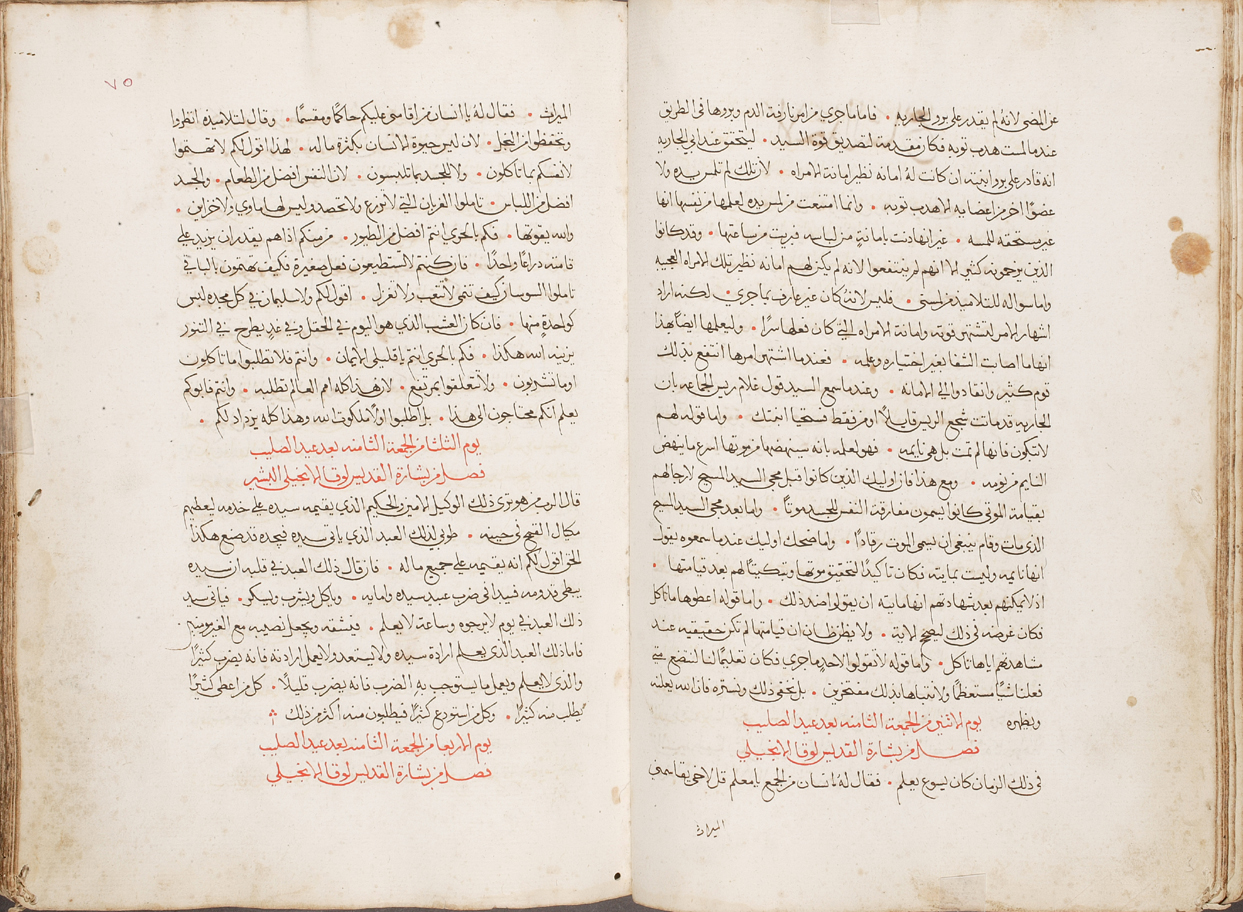 عن المضي لانه لم يقدر على برو الجاريه • فاما ما جري من امر نازفة الدم وبروها في الطريق
عندما لمست هدب ثوبه فكان مقدمة لتصديق قوة السيد • ليتحقق عند ابي الجاريه
انه قادر على برو ابنته ان كانت له امانه نظير امانة الامراه • لان تلك لم تلمس يده ولا
عضوًا اخر من اعضايه الا هدب ثوبه • وانما امتنعت من لمس يده لعلمها من نفسها انها
غير مستحقه للمسه • غير انها دنت بامانةٍ من لباسه فبريت من ساعتها • وقد كانوا
الذين يزحمونه كثير الا انهم لم ينتفعوا لانه لم يكن لهم امانه نظير تلك الامراه العجيبه
واما سواله للتلاميذ من لمسني • فليس لانه كان غير عارف بما جري • لكنه اراد
اشهار الامر لتشتهر قوته وامانة الامراه التي كان فعلها سرًا • وليعلمها ايضًا بهذا
انها ما اصابت الشفا بغير اختياره وعلمه • فعندما اشتهر امرها انتفع بذلك
قوم كثير وانقادوا الي الامانه • وعندما سمع السيد قول غلام ريس الجماعه بان
الجاريه قد ماتت شجع الريس قايلًا اومن فقط فستحيا ابنتك • واما قوله لهم
لا تبكون فانها لم تمت بل هي نايمه • فهو لعلمه بانه سينهضها من موتها اسرع ما ينهض
النايم من نومه • ومع هذا فان اوليك الذين كانوا قبل مجي السيد المسيح لا رجا لهم
بقيامة الموتي كانوا يسمون مفارقة النفس للجسد موتًا • واما بعد مجي السيد المسيح
الذي مات وقام ينبغي ان يسمي الموت رقادًا • واما ضحك اوليك عندما سمعوه يقول
انها نايمه وليست بمايته فكان تاكيدًا لتحقيق موتها وتبكيتًا لهم بعد قيامتها •
اذ لا يمكنهم بعد شهادتهم انها مايته ان يقولوا ضد ذلك • واما قوله اعطوها ما تاكل
فكان غرضه في ذلك ليصح الاية • ولا يظن ظان ان قيامتها لم تكن حقيقيه عند
مشاهدتهم اياها تاكل • واما قوله لا تقولوا لاحدٍ ما جري فكان تعليمًا لنا لنتضع متي
فعلنا شيًا مستعظمًا ولا نتباها بذلك مفتخرين • بل نخفي ذلك ونستره فان الله يعلنه
ويظهره يوم الاثنين من الجمعة الثامنه بعد عيد الصليب
فصل من بشارة القديس لوقا الانجيلي
في ذلك الزمان كان يسوع يعلم • فقال له انسان من الجمع يا معلم قل لاخي يقاسمني
الميراث
٧٥
الميراث • فقال له يا انسان من اقامني عليكم حاكمًا ومقسمًا • وقال لتلاميذه انظروا
وتحفظوا من البخل • لان ليس حيوة الانسان بكثرة ماله • لهذا اقول لكم لا تهتموا
لانفسكم بما تاكلون • ولا للجسد بما تلبسون • لان النفس افضل من الطعام • والجسد
افضل من اللباس • تاملوا الغربان التي لا تزرع ولا تحصد وليس لها ماوي ولا خزاين •
والله يقوتها • فكم بالحري انتم افضل من الطيور • من منكم اذا هم يقدر ان يزيد على
قامته ذراعًا واحدًا • فان كنتم لا تستطيعون فعل صغيرة فكيف تهتمون بالباقي
تاملوا السوسان كيف تنمي لا تتعب ولا تغزل • اقول لكم ولا سليمان في كل مجده لبس
كواحدةٍ منها • فان كان العشب الذي هو اليوم في الحقل وفي غدٍ يطرح في التنور
يزينه الله هكذا • فكم بالحري انتم يا قليلي الايمان • وانتم فلا تطلبوا ما تاكلون
او ما تشربون • ولا تتعلقوا بمرتفع • لان هذا كله امم العالم تطلبه • وانتم فابوكم
يعلم انكم محتاجون الي هذا • بل اطلبوا اولًا ملكوت الله وهذا كله يزداد لكم •
يوم الثلثا من الجمعة الثامنه بعد عيد الصليب
فصل من بشارة القديس لوقا الانجيلي البشير
قال الرب من هو تري ذلك الوكيل الامين والحكيم الذي يقيمه سيده على خدمه يعطيهم
مكيال القمح في حينه • طوبي لذلك العبد الذي ياتي سيده فيجده قد صنع هكذا
الحق اقول لكم انه يقيمه على جميع ماله • فان قال ذلك العبد في قلبه ان سيده
يبطي قدومه فيبدا في ضرب عبيد سيده وامايه • وياكل ويشرب ويسكر • فياتي سيد
ذلك العبد في يوم لا يرجوه وساعة لا يعلم • فيشقه ويجعل نصيبه مع الغير مومنين
فاما ذلك العبد الذي يعلم ارادة سيده ولا يستعد ولا يعمل ارادته فانه يضرب كثيرًا
والذي لا يعلم ويعمل ما يستوجب به الضرب فانه يضرب قليلًا • كل من اعطي كثيرًا
يطلب منه كثيرًا • وكل من استودع كثيرًا فيطلبون منه اكثر من ذلك
يوم الاربعا من الجمعة الثامنه بعد عيد الصليب
فصل من بشارة القديس لوقا الانجيلي